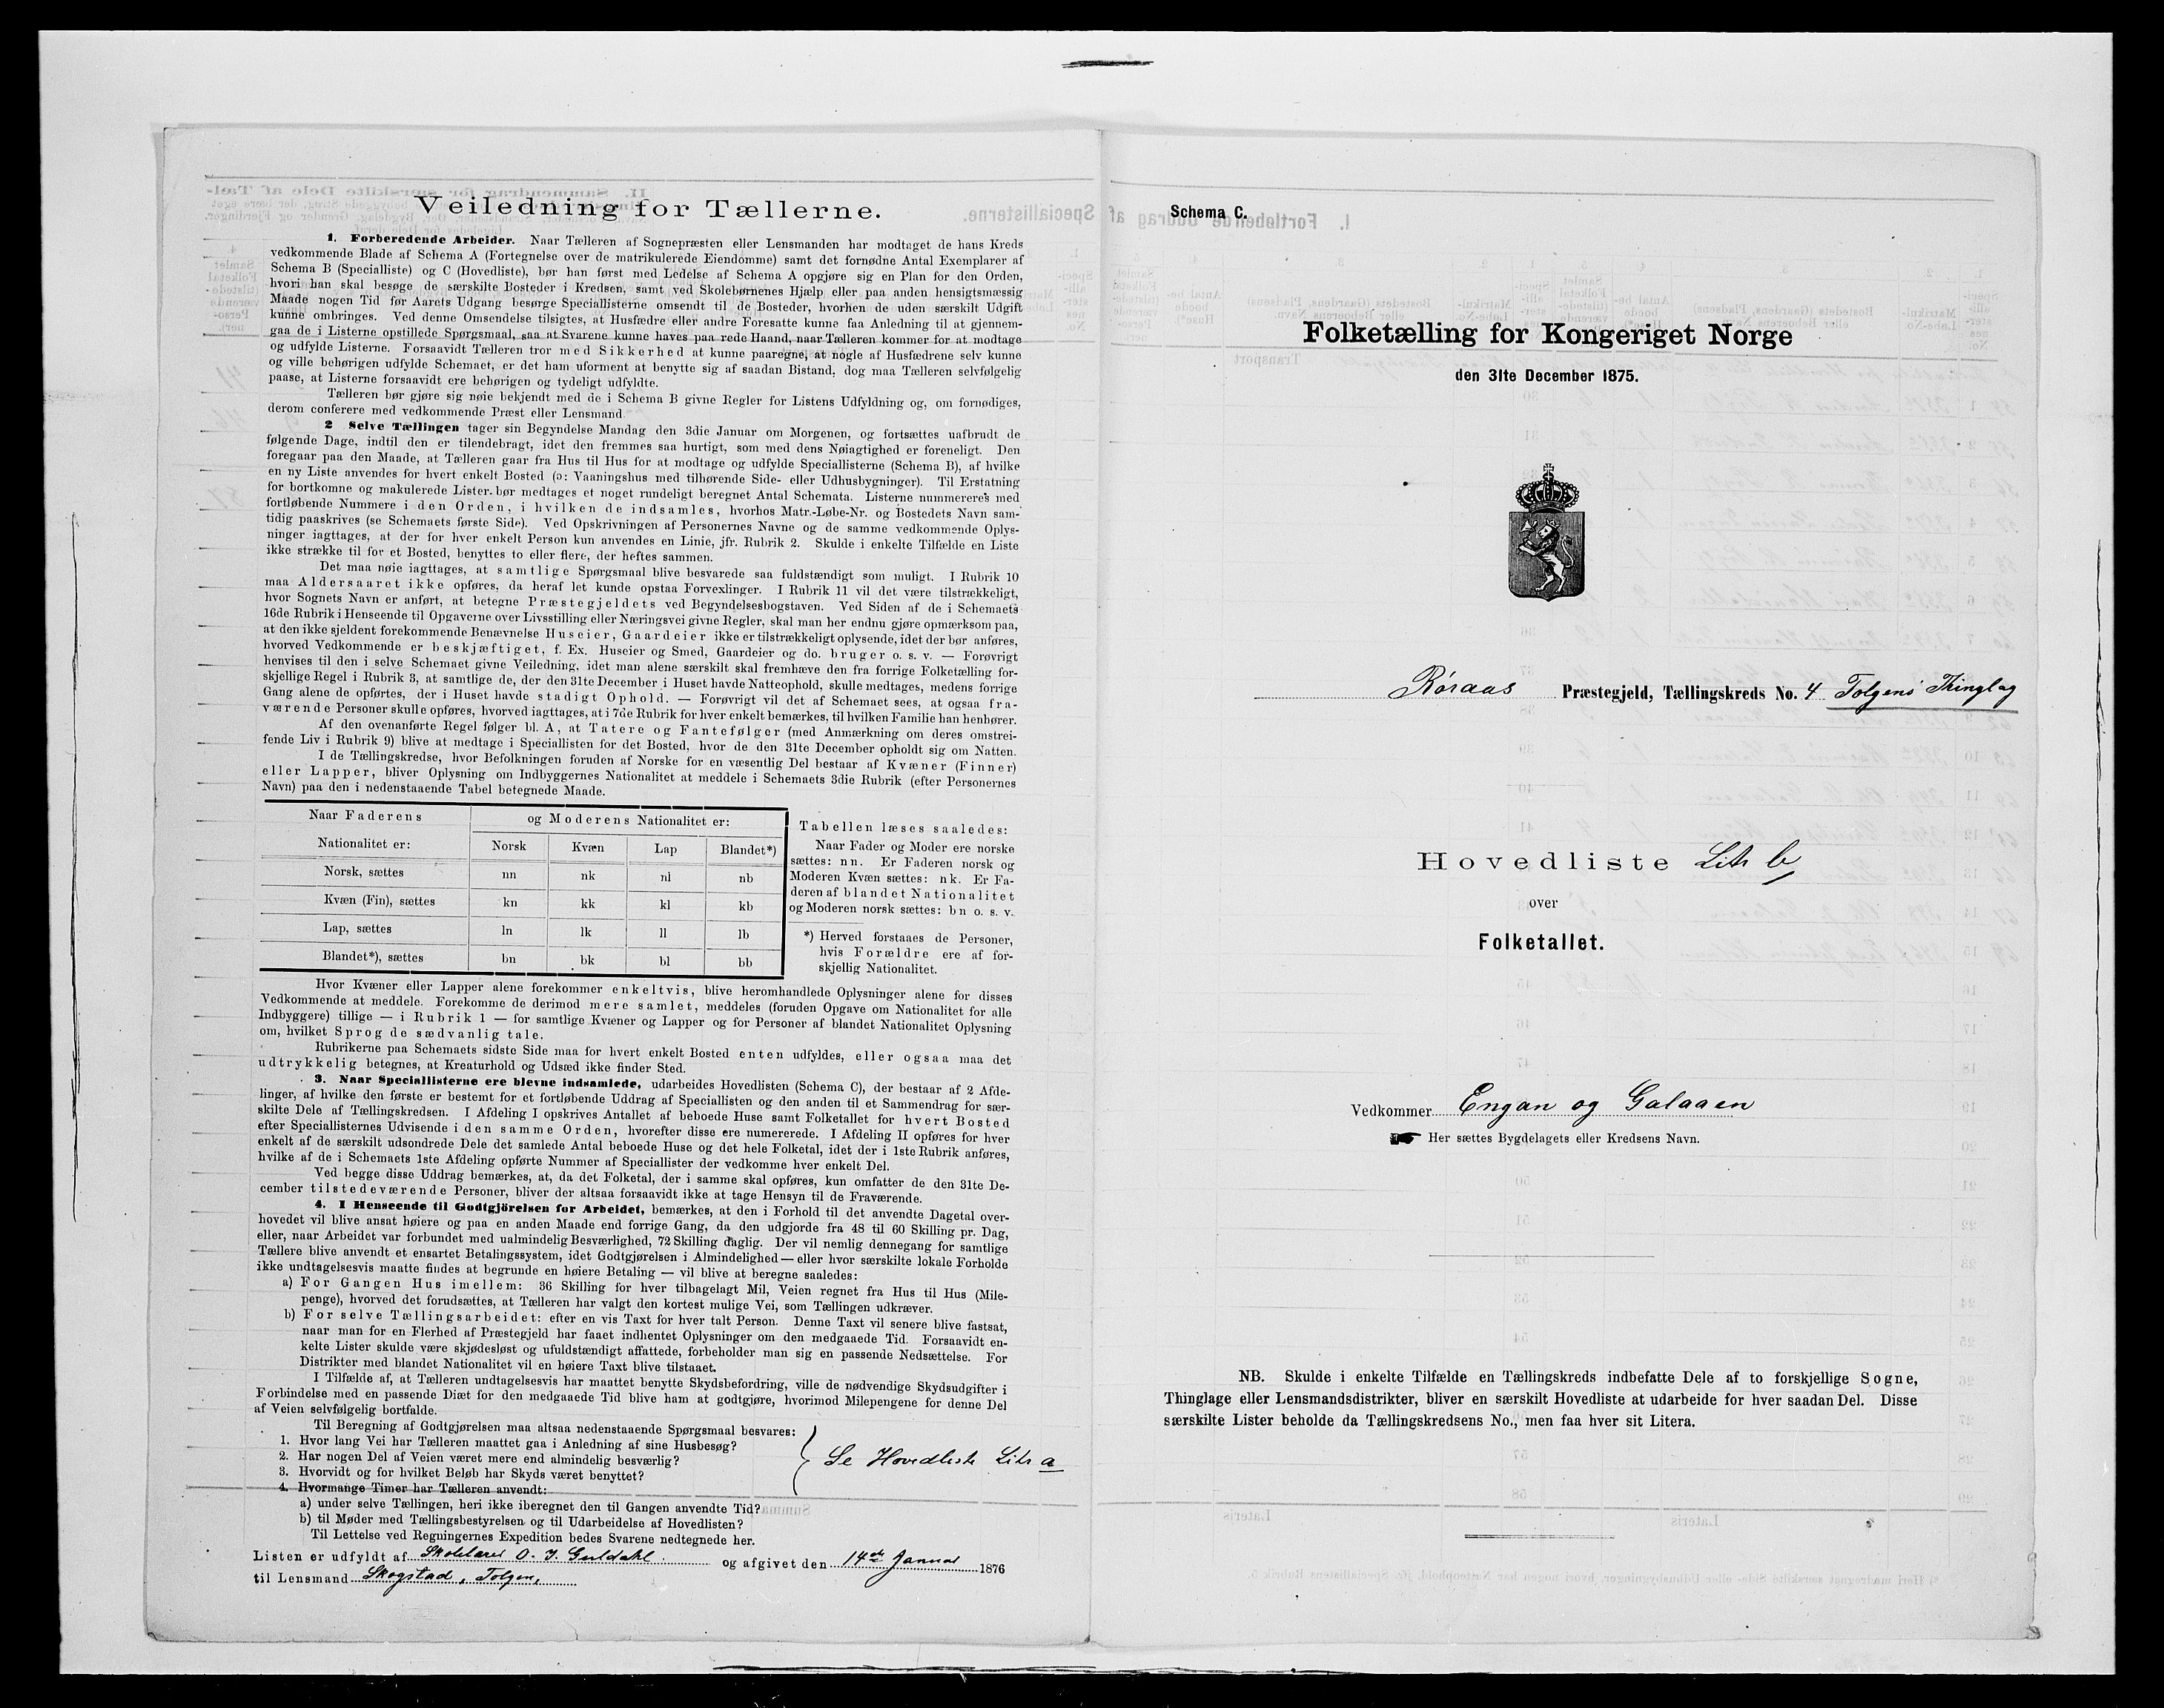 Veiledning for Tællerne.
1. Forberedende Arbeider. Naar Tælleren af Sognepræsten eller Lensmanden har modtaget de hans Kreds
vedkommende Blade af Schema A (Fortegnelse over de matrikulerede Eiendomme) samt det fornødne Antal Exemplarer af
Schema B (Specialliste) og C (Hovedliste), bør han først med Ledelse af Schema A opgjøre sig en Plan for den Orden,
hvori han skal besøge de særskilte Bosteder i Kredsen, samt ved Skolebørnenes Hjælp eller paa anden hensigtsmæssig
Maade nogen Tid før Aarets Udgang besørge Speciallisterne omsendt til de Bosteder, hvorhen de uden særskilt Udgift
kunne ombringes. Ved denne Omsendelse tilsigtes, at Husfædre eller andre Foresatte kunne faa Anledning til at gjennem-
gaa de i Listerne opstillede Spørgsmaal, saa at Svarene kunne haves paa rede Haand, naar Tælleren kommer for at modtage
og udfylde Listerne. Forsaavidt Tælleren tror med Sikkerhed at kunne paaregne, at nogle af Husfædrene selv kunne
og ville behørigen udfylde Schemaet, er det ham uforment at benytte sig af saadan Bistand, dog maa Tælleren selvfølgelig
paase, at Listerne forsaavidt ere behørigen og tydeligt udfyldte.
Tælleren bør gjøre sig nøie bekjendt med de i Schema B givne Regler for Listens Udfyldning og, om fornødiges,
derom conferere med vedkommende Præst eller Lensmand.
2 Selve Tællingen tager sin Begyndelse Mandag den 3die Januar om Morgenen, og fortsættes uafbrudt de
følgende Dage, indtil den er tilendebragt, idet den fremmes saa hurtigt, som med dens Nøiagtighed er foreneligt. Den
foregaar paa den Maade, at Tælleren gaar fra Hus til Hus for at modtage og udfylde Speciallisterne (Schema B), af hvilke
en ny Liste anvendes for hvert enkelt Bosted (ɔ: Vaaningshus med tilhørende Side- eller Udhusbygninger). Til Erstatning
for bortkomne og makulerede Lister bør medtages et noget rundeligt beregnet Antal Schemata. Listerne nummereres med
fortløbende Nummere i den Orden, i hvilken de indsamles, hvorhos Matr.-Løbe-Nr. og Bostedets Navn sam-
tidig paaskrives (se Schemaets første Side). Ved Opskrivningen af Personernes Navne og de samme vedkommende Oplys-
ninger iagttages, at der for hver enkelt Person kun anvendes en Linie, jfr. Rubrik 2. Skulde i enkelte Tilfælde en Liste
ikke strække til for et Bosted, benyttes to eller flere, der heftes sammen.
Det maa nøie iagttages, at samtlige Spørgsmaal blive besvarede saa fuldstændigt som muligt. I Rubrik 10
maa Aldersaaret ikke opføres, da heraf let kunde opstaa Forvexlinger. I Rubrik 11 vil det være tilstrækkeligt,
hvor Sognets Navn er anført, at betegne Præstegjeldets ved Begyndelsesbogstaven. Ved Siden af de i Schemaets
16de Rubrik i Henseende til Opgaverne over Livsstilling eller Næringsvei givne Regler, skal man her endnu gjøre opmærksom paa,
at den ikke sjeldent forekommende Benævnelse Huseier, Gaardeier ikke er tilstrækkeligt oplysende, idet der bør anføres,
hvorved Vedkommende er beskjæftiget, f. Ex. Huseier og Smed, Gaardeier og do. bruger o. s. v. — Forøvrigt
henvises til den i selve Schemaet givne Veiledning, idet man alene særskilt skal fremhæve den fra forrige Folketælling for-
skjellige Regel i Rubrik 3, at samtlige de, der den 31te December i Huset havde Natteophold, skulle medtages, medens forrige
Gang alene de opførtes, der i Huset havde stadigt Ophold. — Forøvrigt vil det af Schemaet sees, at ogsaa fra-
værende Personer skulle opføres, hvorved iagttages, at i 7de Rubrik for hver enkelt bemærkes, til hvilken Familie han henhører.
Af den ovenanførte Regel følger bl. A, at Tatere og Fantefølger (med Anmærkning om deres omstrei-
fende Liv i Rubrik 9) blive at medtage i Speciallisten for det Bosted, hvor de den 31te December opholdt sig om Natten.
I de Tællingskredse, hvor Befolkningen foruden af Norske for en væsentlig Del bestaar af Kvæner (Finner)
eller Lapper, bliver Oplysning om Indbyggernes Nationalitet at meddele i Schemaets 3die Rubrik (efter Personernes
Navn) paa den i nedenstaaende Tabel betegnede Maade.
Naar Faderens og Moderens Nationalitet er:
Nationalitet er: Norsk Kvæn Lap Blandet*)
Norsk, sættes nn nk nl nb
Kvæn (Fin), sættes kn kk kl kb
Lap, sættes ln lk ll lb
Blandet*), sættes bn bk bl bb
Tabellen læses saaledes:
Naar Fader og Moder ere norske
sættes: nn. Er Faderen norsk og
Moderen Kvæn sættes: nk. Er Fa-
deren af blandet Nationalitet
og Moderen norsk sættes: bn o. s. v.
*) Herved forstaaes de Personer,
hvis Forældre ere af for-
skjellig Nationalitet.
Hvor Kvæner eller Lapper alene forekommer enkeltvis, blive heromhandlede Oplysninger alene for disses
Vedkommende at meddele. Forekomme de derimod mere samlet, meddeles (foruden Opgave om Nationalitet for alle
Indbyggere) tillige — i Rubrik 1 — for samtlige Kvæner og Lapper og for Personer af blandet Nationalitet Oplysning
om, hvilket Sprog de sædvanlig tale.
Rubrikerne paa Schemaets sidste Side maa for hvert enkelt Bosted enten udfyldes, eller ogsaa maa det
udtrykkelig betegnes, at Kreaturhold og Udsæd ikke finder Sted.
3. Naar Speciallisterne ere blevne indsamlede, udarbeides Hovedlisten (Schema C), der bestaar af 2 Afde-
linger, af hvilke den første er bestemt for et fortløbende Uddrag af Speciallisten og den anden til et Sammendrag for sær-
skilte Dele af Tællingskredsen. I Afdeling I opskrives Antallet af beboede Huse samt Folketallet for hvert Bosted
efter Speciallisternes Udvisende i den samme Orden, hvorefter disse ere numererede. I Afdeling II opføres for hver
enkelt af de særskilt udsondrede Dele det samlede Antal beboede Huse og det hele Folketal, idet der i 1ste Rubrik anføres,
hvilke af de i Schemaets 1ste Afdeling opførte Nummer af Speciallister der vedkomme hver enkelt Del.
Ved begge disse Uddrag bemærkes, at, da det Folketal, der i samme skal opføres, kun omfatter de den 31te De-
cember tilstedeværende Personer, bliver der altsaa forsaavidt ikke at tage Hensyn til de Fraværende.
4. I Henseende til Godtgjörelsen for Arbeidet, bemærkes, at den i Forhold til det anvendte Dagetal over-
hovedet vil blive ansat høiere og paa en anden Maade end forrige Gang, da den udgjorde fra 48 til 60 Skilling pr. Dag,
eller, naar Arbeidet var forbundet med ualmindelig Besværlighed, 72 Skilling daglig. Der vil nemlig dennegang for samtlige
Tællere blive anvendt et ensartet Betalingssystem, idet Godtgjørelsen i Almindelighed — eller hvor særskilte lokale Forholde
ikke undtagelsesvis maatte findes at begrunde en høiere Betaling — vil blive at beregne saaledes:
a) For Gangen Hus imellem: 36 Skilling for hver tilbagelagt Mil, Veien regnet fra Hus til Hus (Mile-
penge), hvorved det forudsættes, at Tælleren har valgt den kortest mulige Vei, som Tællingen udkræver.
b) For selve Tællingsarbeidet: efter en vis Taxt for hver talt Person. Denne Taxt vil senere blive fastsat,
naar man for en Flerhed af Præstegjeld har faaet indhentet Oplysninger om den medgaaede Tid. Forsaavidt en-
kelte Lister skulde være skjødesløst og ufuldstændigt affattede, forbeholder man sig en passende Nedsættelse. For
Distrikter med blandet Nationalitet vil en høiere Taxt blive tilstaaet.
I Tilfælde af, at Tælleren undtagelsesvis har maattet benytte Skydsbefordring, ville de nødvendige Skydsudgifter i
Forbindelse med en passende Diæt for den medgaaede Tid blive ham at godtgjøre, hvorimod Milepengene for denne Del
af Veien selvfølgelig bortfalde.
Til Beregning af Godtgjørelsen maa altsaa nedenstaaende Spørgsmaal besvares:
1. Hvor lang Vei har Tælleren maattet gaa i Anledning af sine Husbesøg?
2. Har nogen Del af Veien været mere end almindelig besværlig?
3. Hvorvidt og for hvilket Beløb har Skyds været benyttet?
4. Hvormange Timer har Tælleren anvendt:
a) under selve Tællingen, heri ikke iberegnet den til Gangen anvendte Tid?
b) til Møder med Tællingsbestyrelsen og til Udarbeidelse af Hovedlisten?
Til Lettelse ved Regningernes Expedition bedes Svarene nedtegnede her.
Se Hovedliste Litr a
Listen er udfyldt af Skolelærer O. J. Guldahl og afgivet den 14de Januar 1876
til Lensmand Skogstad, Tolgen,
Schema C.
Folketælling for Kongeriget Norge
den 31te December 1875.
Røraas Præstegjeld, Tællingskreds No. 4 Tolgens Thinglag
Hovedliste Litr b
over
Folketallet.
Vedkommer Engan og Galaaen
Her sættes Bygdelagets eller Kredsens Navn.
NB. Skulde i enkelte Tilfælde en Tællingskreds indbefatte Dele af to forskjellige Sogne,
Thinglage eller Lensmandsdistrikter, bliver en særskilt Hovedliste at udarbeide for hver saadan Del. Disse
særskilte Lister beholde da Tællingskredsens No., men faa hver sit Litera.